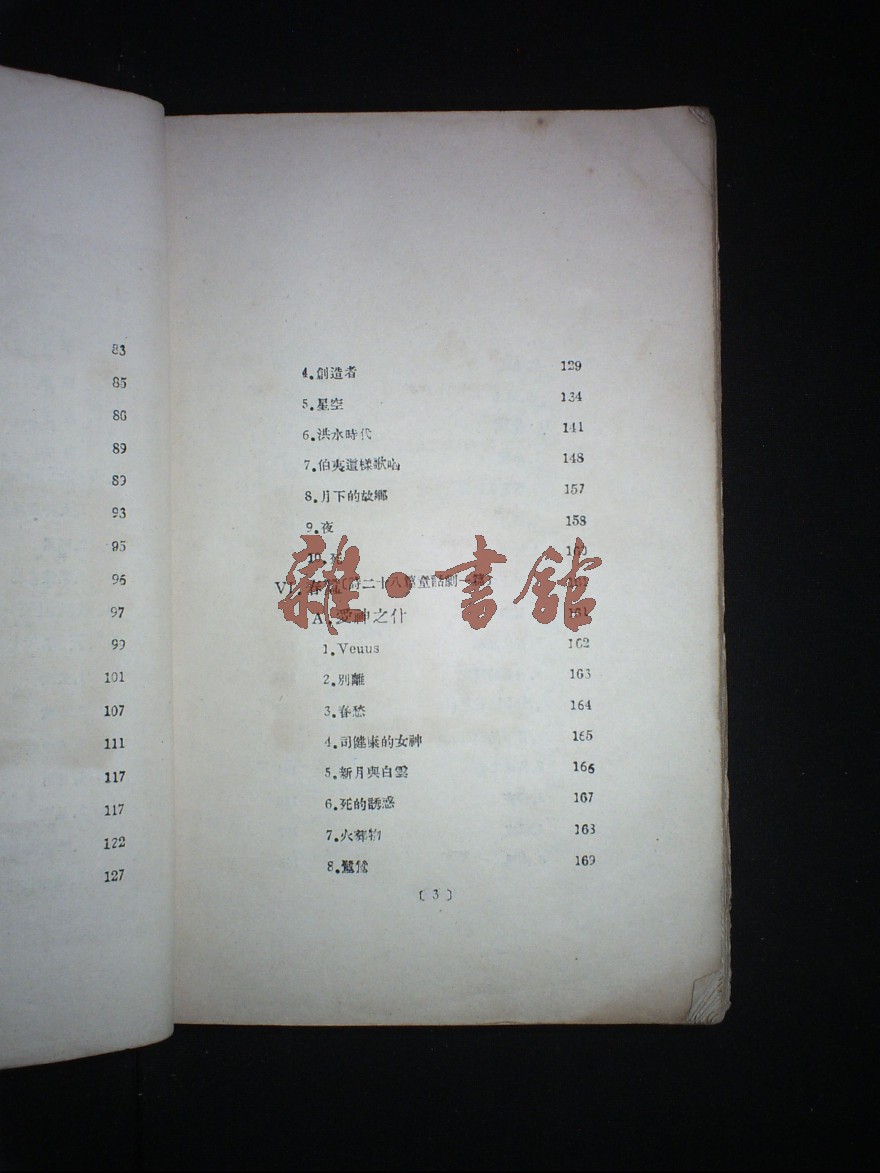 83
85
86
89
89
93
95
96
97
99
101
107
111
117
117
122
127
4.創造者 129
5.星空 134
6.洪水時代 141
7.伯夷這樣歌唱 148
8.月下的故鄉 157
9.夜 158
10.死
VI.春 〔詩二十八篇童話劇一篇〕
A.愛神之什 161
1.Veuus 162
2.別離 163
3.春愁 164
4.司健康的女神 165
5.新月與白雲 166
6.死的誘惑 167
7.火葬物 168
8.鷺鷥 169
〔3〕
雜·書館